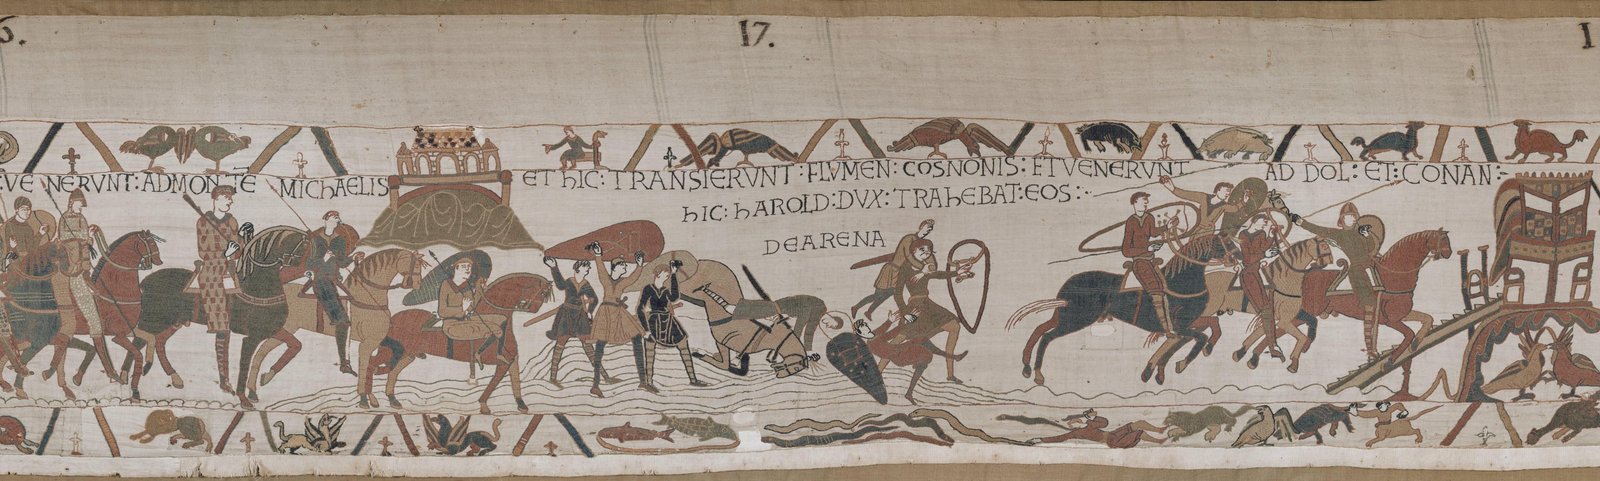 6.
17.
1
VENERVNT : AD MONTE MICHAELIS
ET hIC : TRANSIERVNT : FLVMEN : COSNONIS : ET VENERVNT AD DOL : ET : CONAN :-
hIC : hAROLD : DVX : TRAhEBAT : EOS :
DE ARENA